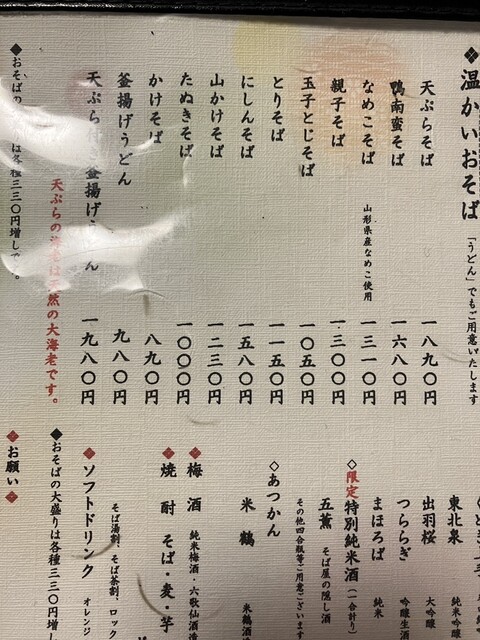 ❖温かいおそば 「うどん」でもご用意いたします
天ぷらそば 一八九〇円
鴨南蛮そば 一六八〇円
なめこそば 山形県産なめこ使用 一三一〇円
親子そば 一三〇〇円
玉子とじそば 一〇五〇円
とりそば 一一五〇円
にしんそば 一五八〇円
山かけそば 一二三〇円
たぬきそば 一〇〇〇円
かけそば 八九〇円
釜揚げうどん 九八〇円
天ぷら 釜揚げうどん 一九八〇円
天ぷらの は天然の大海老です。
◆おそばの は各種三三〇円増しです。
東北泉 純米吟醸
出羽桜 大吟醸
つららぎ 吟醸生
まほろば 純米
◇限定特別純米酒(一合計り)
五薫 そば屋の隠し酒
その他四合瓶等ご用意ございます
◇あつかん
米鶴 米鶴酒
❖梅酒 純米梅酒・六歌仙酒造
❖焼酎 そば・麦・芋
そば湯割、そば茶割、ロック
❖ソフトドリンク オレンジ
◆おそばの大盛りは各種三三〇円増し
❖お願い❖